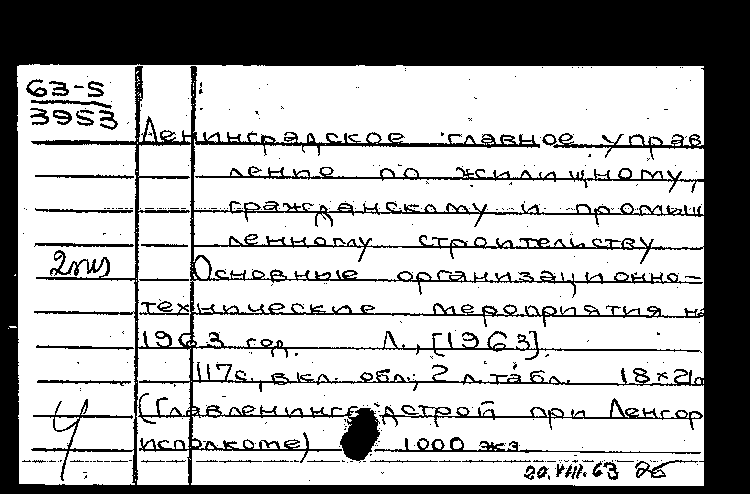 63-5
3953
Ленинградское главное управ
ление по жилищному,
гражданскому и промыш
ленному строительству
Основные организационно-
технические мероприятия на
1963 год. Л., [1963].
117с., вкл. обл.; 2 л. табл. 18×21с
(Главленингр дстрой при Ленгор
исполкоме) 1000 экз
20.VIII.63